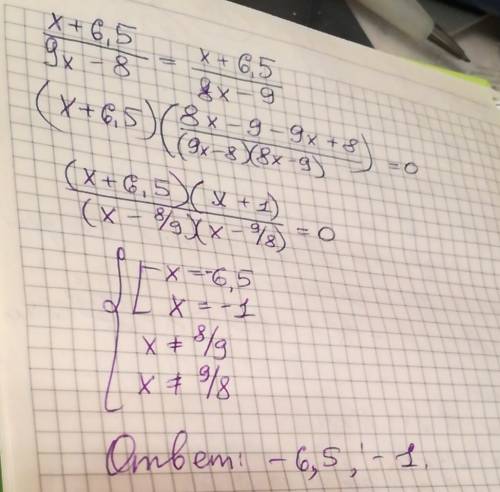 (x+6,5)/(9x-8) = (x+6,5)/(8x-9)
(x+6,5)((8x-9-9x+8)/((9x-8)(8x-9)))=0
((x+6,5)(x+1))/((x-8/9)(x-9/8))=0
{[x=-6,5
x=-1
x≠8/9
x≠9/8
Ответ: -6,5; -1.